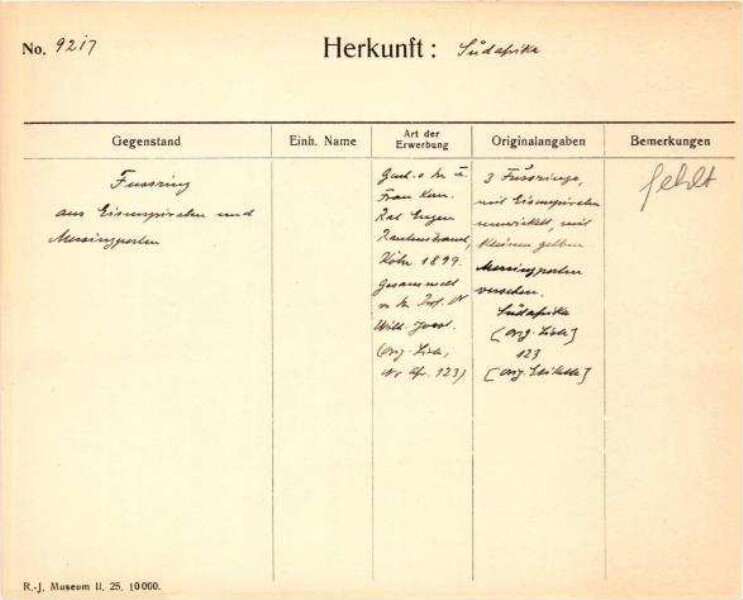 No. 9217
Herkunft: Südafrika
Gegenstand
Einh. Name
Art der
Erwerbung
Originalangaben
Bemerkungen
Fussring
aus Eisenspiralen und
Messingperlen
Gesch. v. Hr. u.
Frau Kom.
Rat Eugen
Rautenstrauch,
Köln 1899.
Gesammelt
v. Hr. Prof. Dr
Wilh. Joest.
(Orig. Liste,
Nr Afr. 123)
3 Fussringe,
mit Eisenspiralen
umwickelt, mit
kleinen gelben
Messingperlen
versehen.
Südafrika
[Orig. Liste]
123
[Orig. Etikette]
fehlt
R.-J. Museum II. 25. 10000.